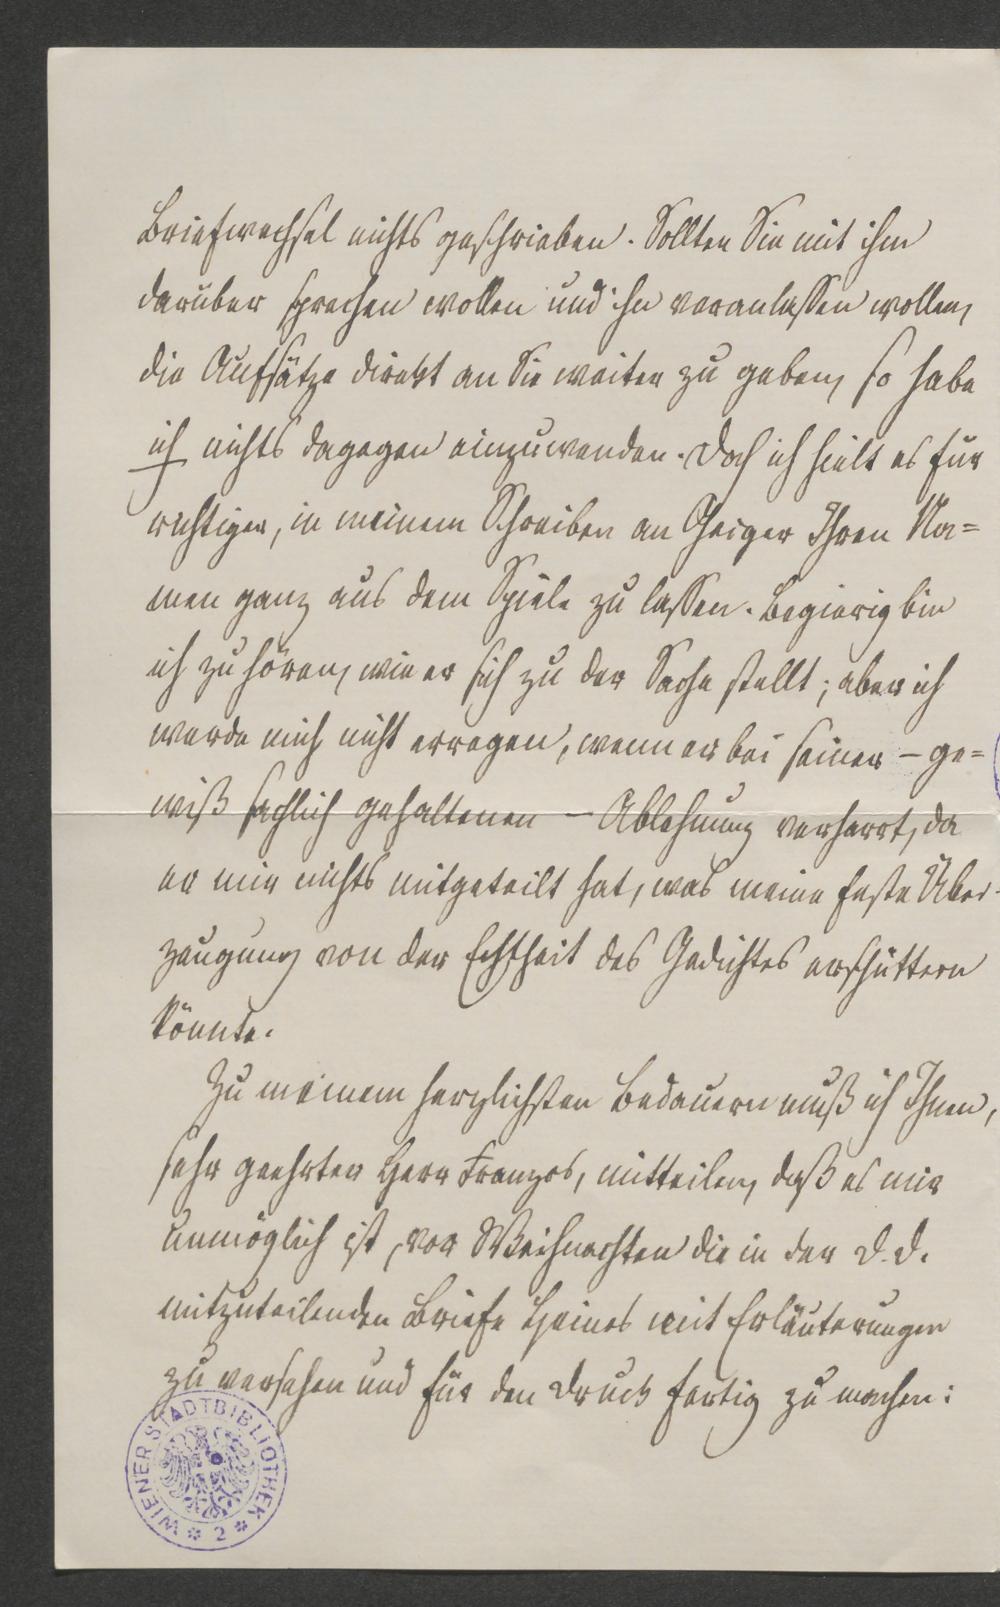 Briefwechsel nichts geschrieben. Sollten Sie mit ihm
darüber sprechen wollen und ihn veranlassen wollen,
die Aufsätze direkt an Sie weiter zu geben, so habe
ich nichts dagegen einzuwenden. Doch ich hielt es für
richtiger, in meinem Schreiben an Geiger Ihren Na=
men ganz aus dem Spiele zu lassen. Begierig bin
ich zu hören, wie er sich zu der Sache stellt; aber ich
werde mich nicht erregen, wenn er bei seiner – ge=
wiß sachlich gehaltenen – Ablehnung verharrt, da
er mir nichts mitgeteilt hat, was meine feste Über-
zeugung von der Echtheit des Gedichtes erschüttern
könnte.
Zu meinem herzlichsten Bedauern muß ich Ihnen,
sehr geehrter Herr Franzos, mitteilen, daß es mir
unmöglich ist, vor Weihnachten die in der D. D.
mitzuteilenden Briefe Heines mit Erläuterungen
zu versehen und für den Druck fertig zu machen:
WIENER STADTBIBLIOTHEK
* 2 *